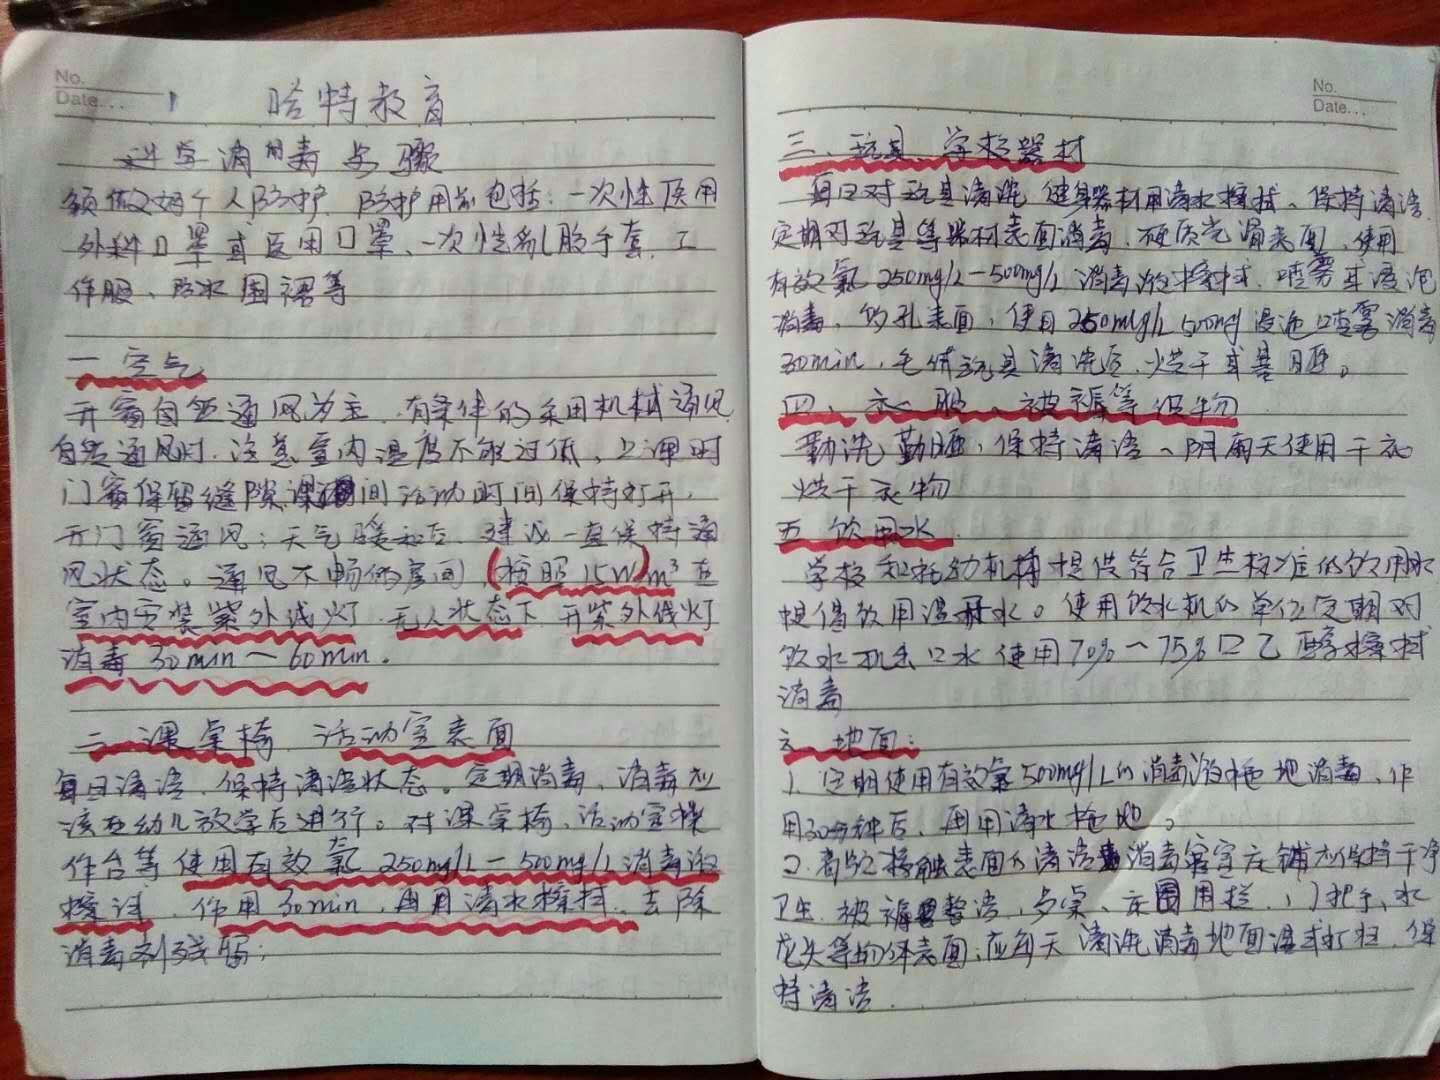 No.
Date...
哈特教育
科学消毒步骤
须做好个人防护. 防护用品包括: 一次性医用
外科口罩或医用口罩、一次性乳胶手套. 工
作服、防水围裙等
一 空气
开窗自然通风为主. 有条件的采用机械通风
自然通风时. 注意室内温度不能过低, 上课时
门窗保留缝隙课间活动时间保持打开,
开门窗通风; 天气暖和后. 建议一直保持通
风状态。通风不畅的房间 (按照15W/m³在
室内安装紫外线灯. 无人状态下 开紫外线灯
消毒 30min~60min.
二 课桌椅. 活动室表面
每日清洁. 保持清洁状态。定期消毒. 消毒应
该在幼儿放学后进行。对课桌椅、活动室操
作台等 使用有效氯 250mg/L-500mg/L消毒液
擦试. 作用30min. 再用清水擦拭. 去除
消毒剂残留;
No.
Date...
三、玩具、学校器材
每日对玩具清洗 健身器材用清水擦拭、保持清洁.
定期对玩具等器材表面消毒. 硬质光滑表面, 使用
有效氯 250mg/L-500mg/L 消毒液擦拭. 喷雾或浸泡
消毒, 的孔表面, 使用 250mg/L 500mg 浸泡喷雾消毒
30min, 毛绒玩具清洗后. 烘干或暴晒。
四、衣服、被褥等织物
勤洗勤晒, 保持清洁、阴雨天使用干衣
烘干衣物
五 饮用水
学校和托幼机构提供符合卫生标准的饮用水
提倡饮用温开水。使用饮水机的单位定期对
饮水机出口水 使用70%~75%口乙醇擦拭
消毒
六 地面:
1. 定期使用有效氯500mg/L的消毒液拖地消毒, 作
用30分钟后、再用清水拖地。
2. 高频接触表面的清洁 消毒寝室床铺应保持干净
卫生. 被褥整洁, 乡桌、床围用栏、门把手、水
龙头等物体表面, 应每天清洗消毒地面湿式打扫, 保
持清洁.